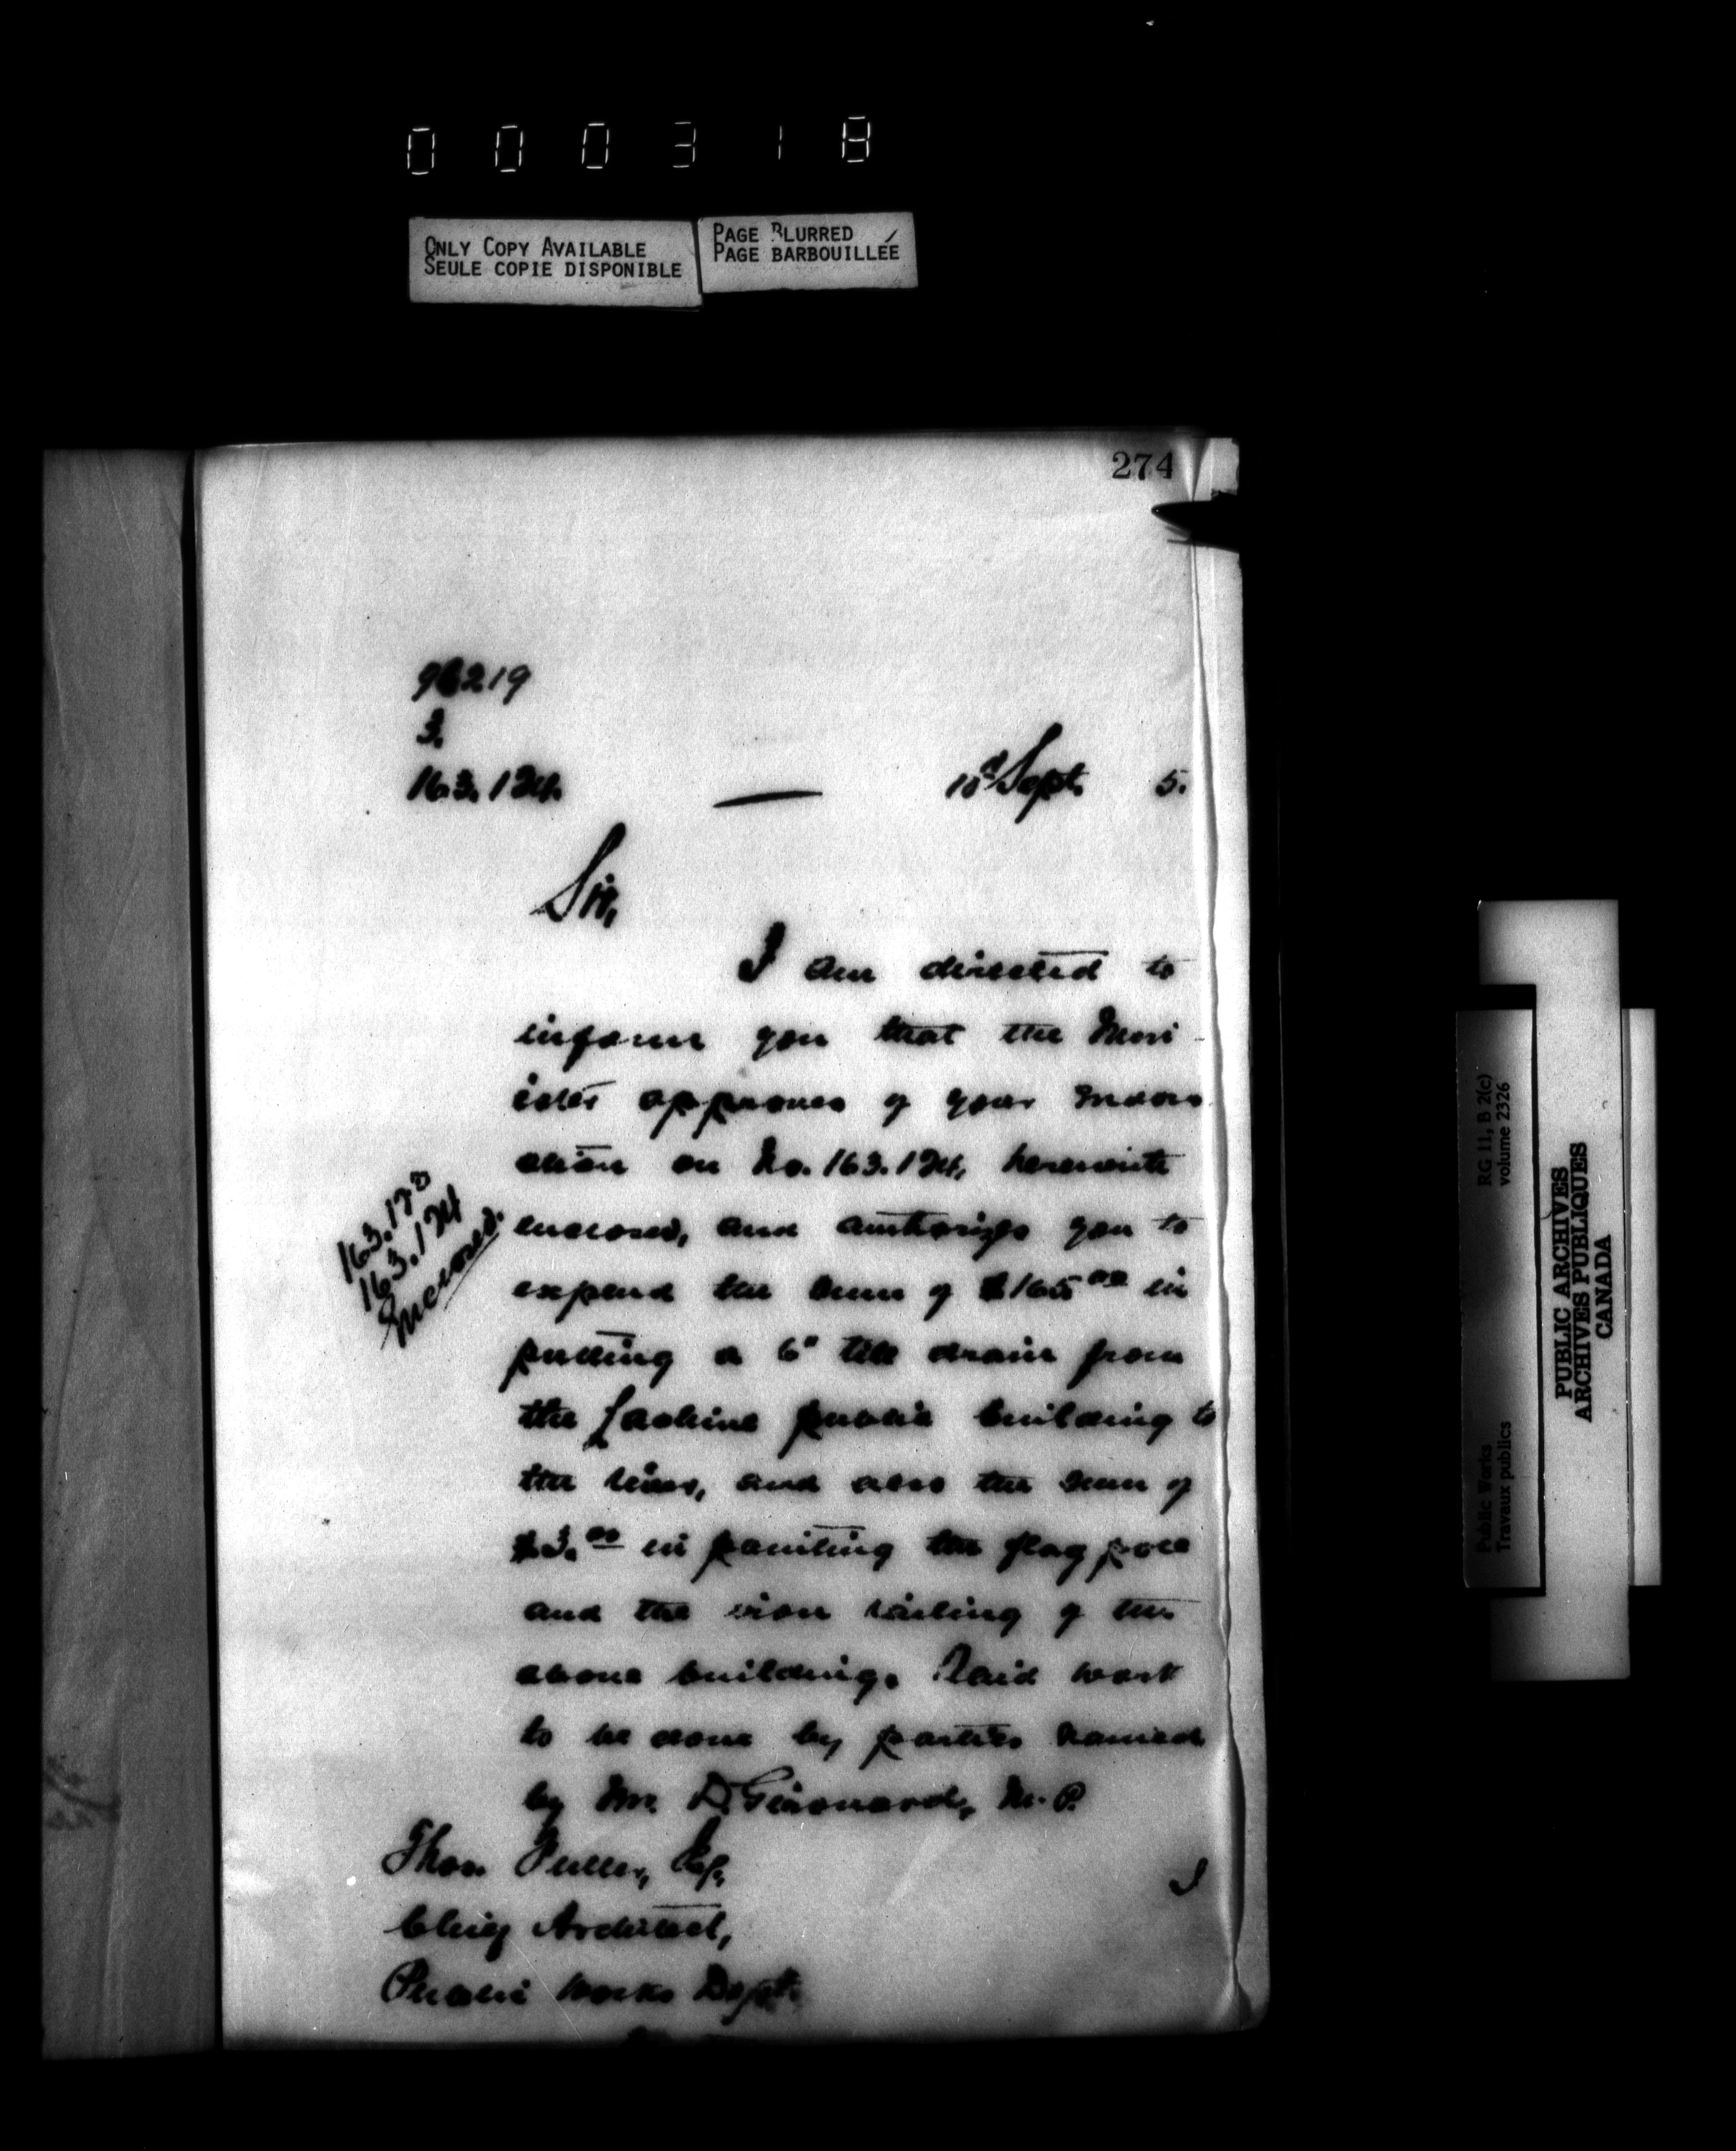 000318
ONLY COPY AVAILABLE
SEULE COPIE DISPONIBLE
PAGE BLURRED
PAGE BARBOUILLÉE
274
96219
3.
163.124.
Sept. 5.
Sir,
I am directed to
inform you that the Min-
ister approves of your
on No. 163.124, herewith
enclosed, and authorizes you to
expend the sum of $165 00 in
putting a 6" tile drain from
the Lachine public building to
the river, and also the sum of
$3. 00 in painting the flag pole
and the iron railing of the
above building. Said work
to be done by parties named
by Mr. D. Girouard, M.P.
163.123
163.124
Enclosed.
Thos. Fuller, Esq.
Chief Architect,
Public Works Dept.
I
Public Works RG 11, B 2(c)
Travaux publics volume 2326
PUBLIC ARCHIVES
ARCHIVES PUBLIQUES
CANADA